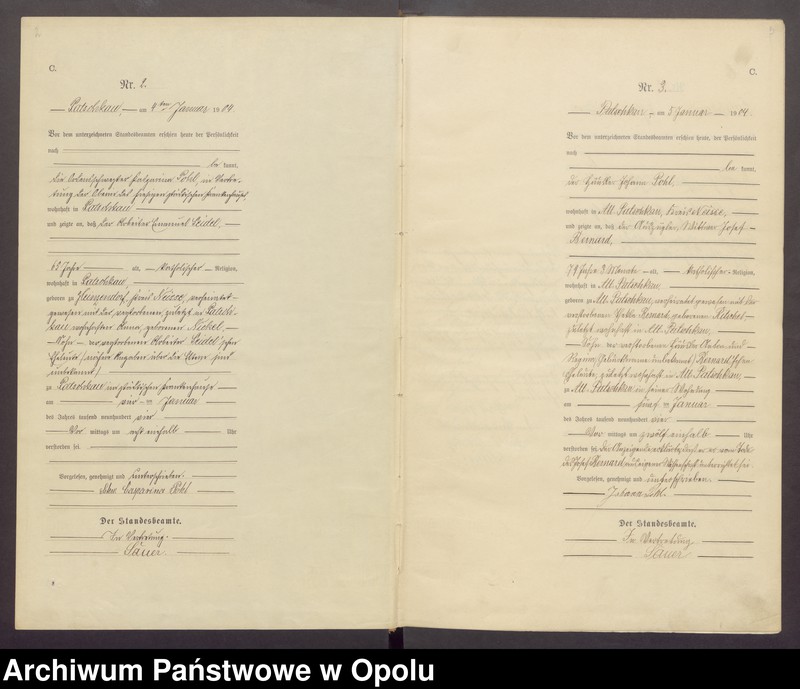 C.
Nr. 2.
Patschkau, am 4ten Januar 1904.
Vor dem unterzeichneten Standesbeamten erschien heute der Persönlichkeit
nach
be kannt,
die Ordensschwester Pohl, in Vertre-
tung der Oberin des hiesigen städtischen Krankenhauses
wohnhaft in Patschkau
und zeigte an, daß der Arbeiter Emanuel Seidel,
65 Jahre alt, katholischer Religion,
wohnhaft in Patschkau,
geboren zu Heinzendorf, Kreis Neisse, verheiratet
gewesen mit der verstorbenen, zuletzt in Patsch-
kau wohnhaften Anna, geborenen
Sohn der verstorbenen Arbeiter Seidel'schen
Eheleute (nähere Angaben über die Namen sind
unbekannt)
zu Patschkau im städtischen Krankenhause
am vier ten Januar
des Jahres tausend neunhundert vier
Vor mittags um acht einhalb Uhr
verstorben sei.
Vorgelesen, genehmigt und unterschrieben.
Pohl
Der Standesbeamte.
In Vertretung.
Sauer
C.
Nr. 3.
Patschkau, am 5 Januar 1904.
Vor dem unterzeichneten Standesbeamten erschien heute, der Persönlichkeit
nach
be kannt,
der Häusler Johann Pohl,
wohnhaft in Alt-Patschkau, Kreis Neisse,
und zeigte an, daß der Auszügler, Witwer Josef
Bernard,
79 Jahre 3 Monate alt, katholischer Religion,
wohnhaft in Alt-Patschkau
geboren zu Alt-Patschkau, verheiratet gewesen mit der
verstorbenen Bernard, geborenen
zuletzt wohnhaft in Alt-Patschkau,
Sohn der verstorbenen Häusler Anton und
(Geburtsname unbekannt) Bernard'schen
Eheleute, zuletzt wohnhaft in Alt-Patschkau,
zu Alt-Patschkau in seiner Wohnung
am fünf ten Januar
des Jahres tausend neunhundert vier
Vor mittags um zwölf einhalb Uhr
verstorben sei. Der Anzeigende erklärte, daß er von dem Tode
des Josef Bernard aus eigener Wissenschaft unterrichtet sei.
Vorgelesen, genehmigt und unterschrieben.
Johann Pohl.
Der Standesbeamte.
In Vertretung.
Sauer
Archiwum Państwowe w Opolu